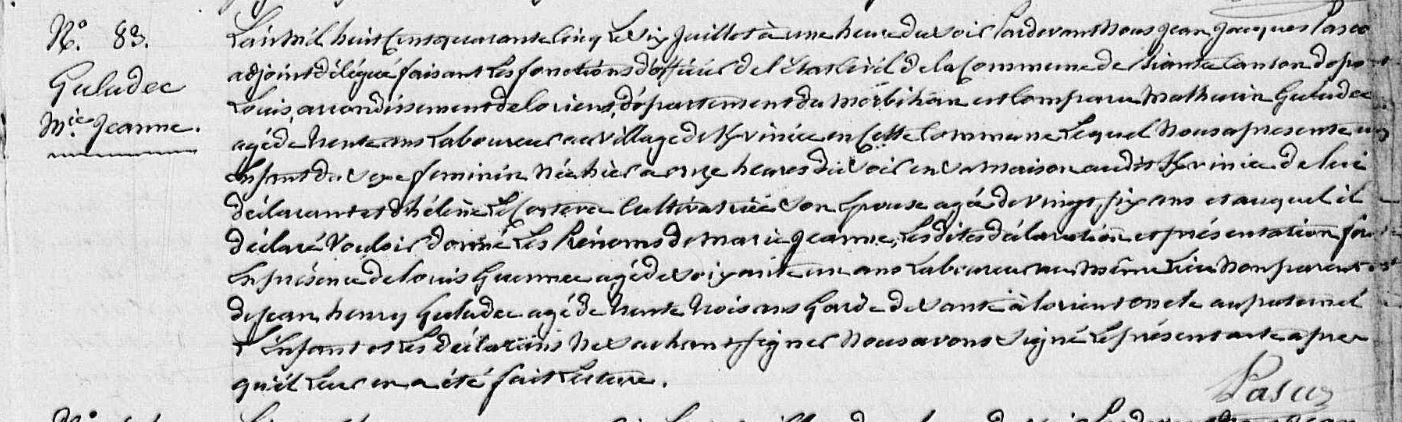 N.º 83.
Guludec
M.ie Jeanne.
L'an mil huit cent quarante cinq le six juillet à une heure du soir Pardevant nous Jean Jacques Pasco
adjoint délégué faisant les fonctions d'officier de l'état Civil de la Commune de Riantec Canton de po
Louis, arrondissement de lorient, département du morbihan est Comparu Mathurin Guludec
agé de trente ans Laboureur au village de Kvinie en Cette Commune Lequel Nous a presenté un
enfant du sexe feminin Née hier à onze heures du soir en sa maison audit Kvinie de lui
déclarant et d'hélène Le Cultivatrice son Epouse agée de vingt six ans et auquel il
declaré Vouloir donné Les Prénoms de marie Jeanne, Lesdites déclaration et présentation
En présence de louis Guennec agé de soixante un ans Laboureur au même Lieu Non parent et
de jean henry Guludec agé de trente trois ans Garde de santé à lorient oncle au paternel
Enfant et Les déclarans Ne sachant signer Nous avons signé Le présent acte apres
qu'il Leur en a été fait Lecture.
Pasco